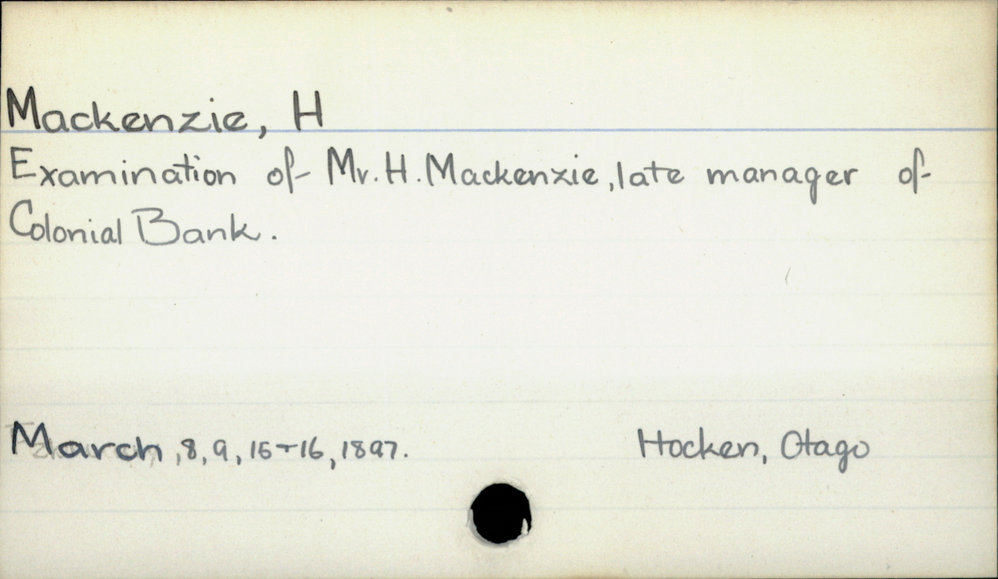 Mackenzie, H
Examination of Mr. H. Mackenzie, late manager of
Colonial Bank.
March, 8, 9, 15-16, 1897.
Hocken, Otago